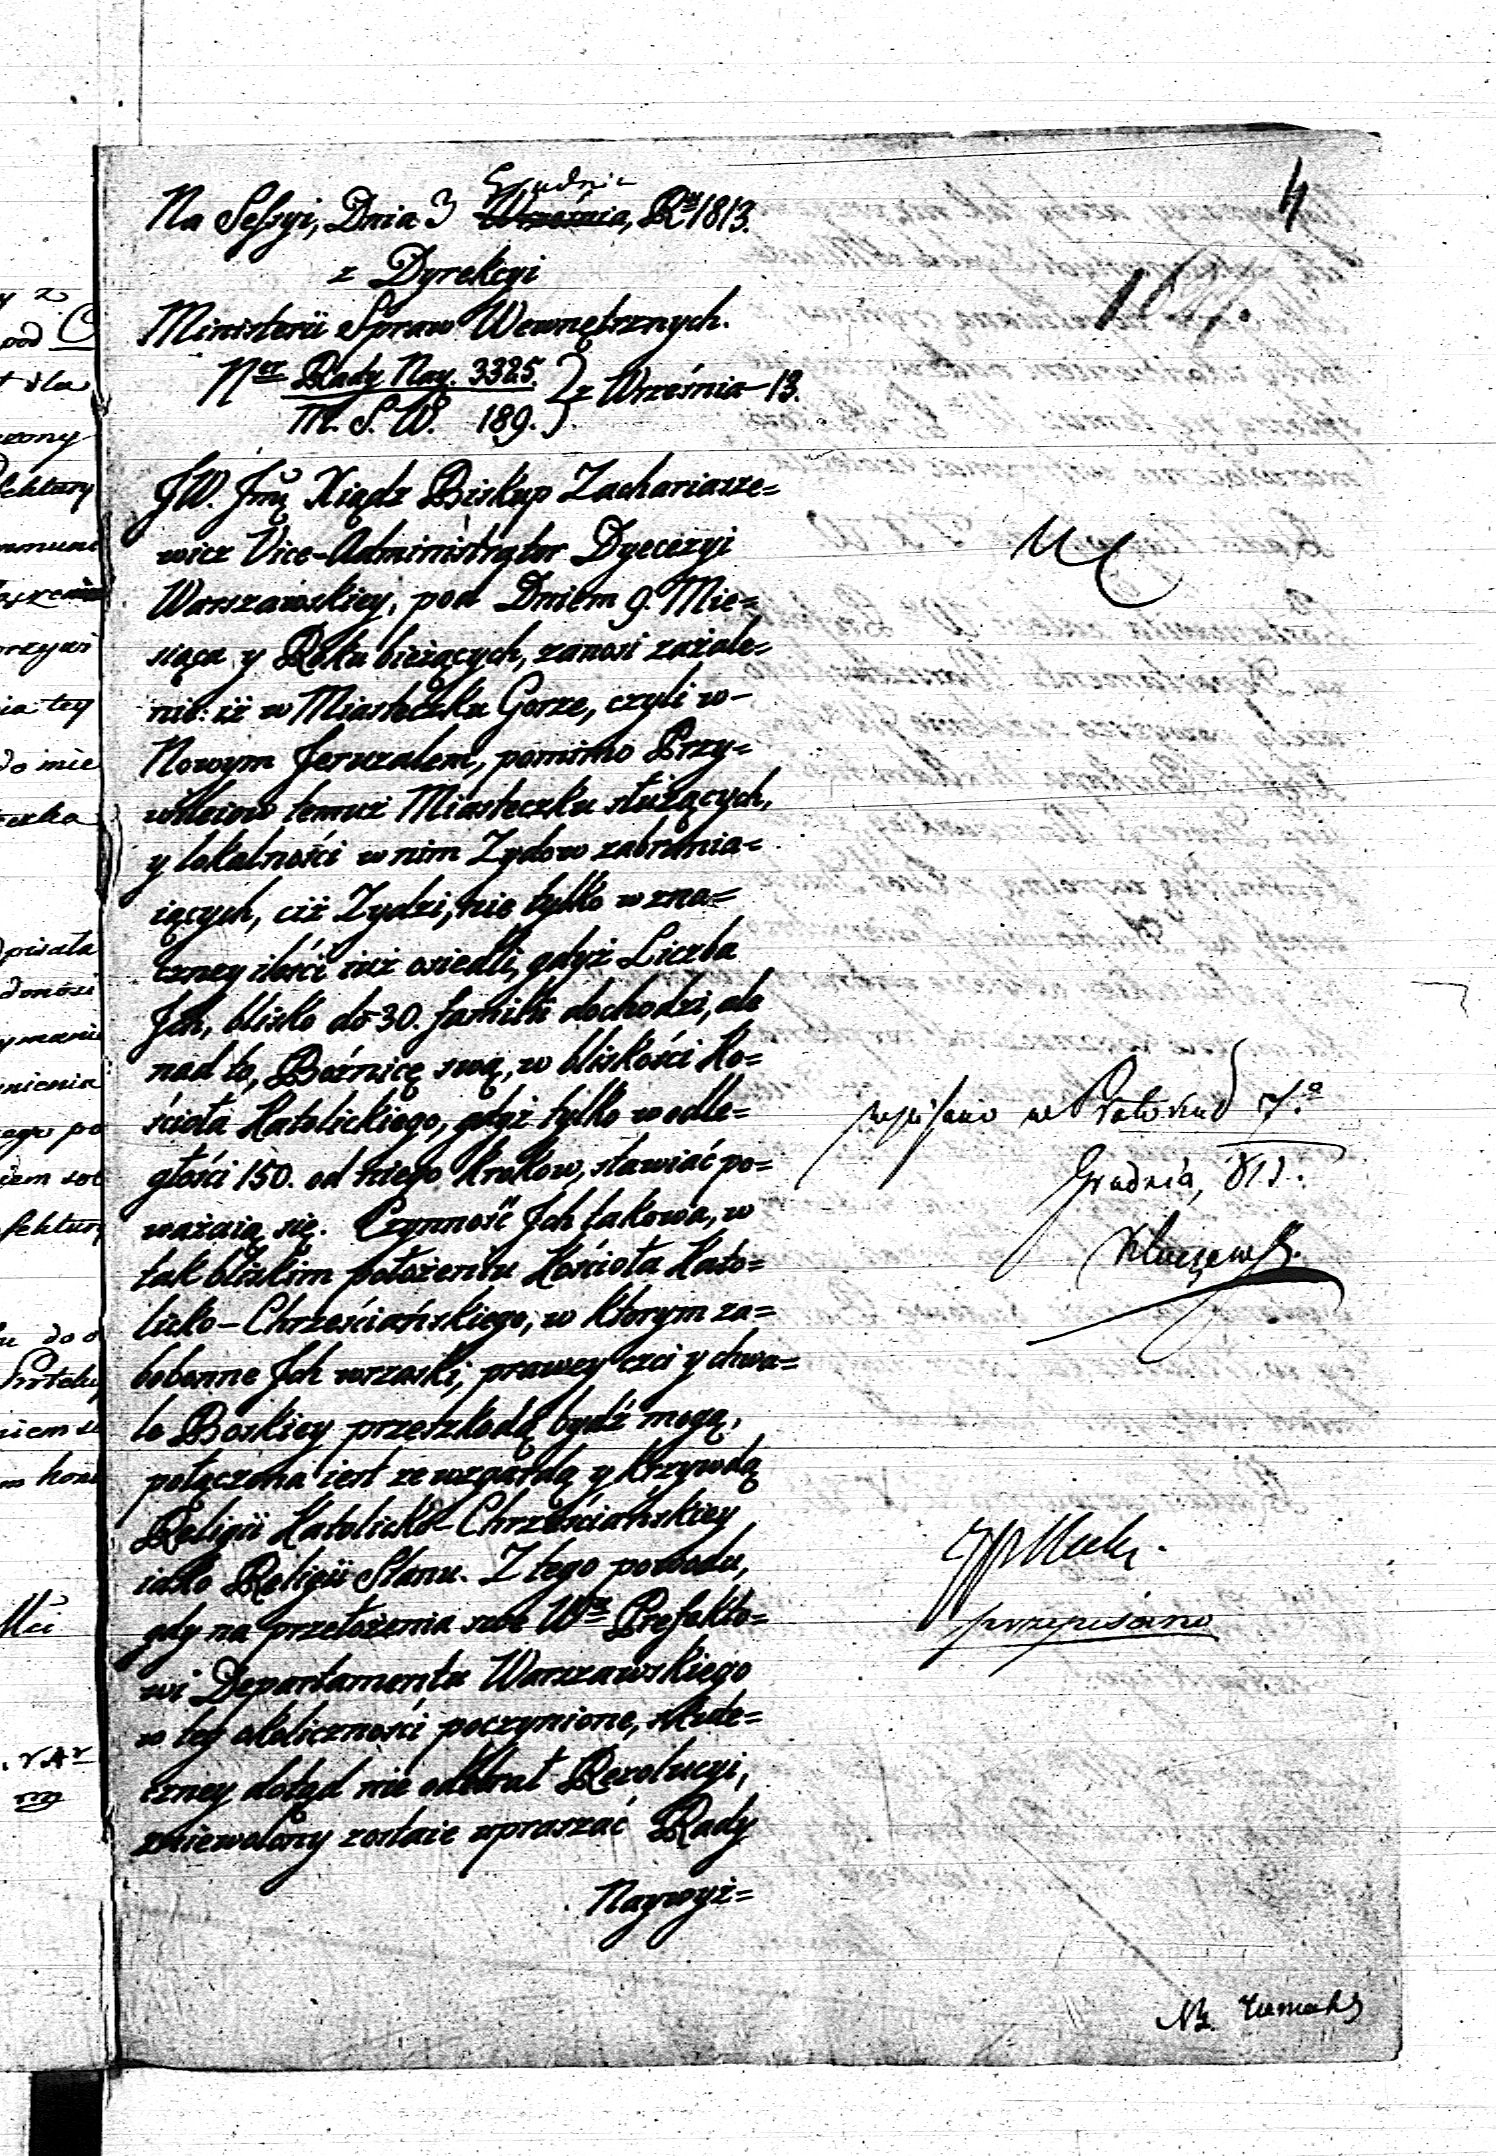 4
Grudnia
Na Sessyi, Dnia 3 Września, Rᵘ 1813.
z Dyrekcyi
Ministerii Spraw Wewnętrznych.
Nᵉʳ Rady Nay. 3325. } z Września 13.
M. S. W. 189.
JW. Jmć Xiądz Biskup Zachariasze=
wicz Vice-Administrator Dyecezyi
Warszawskiey, pod Dniem 9. Mie=
siąca y Roku bieżących, zanosi zażale=
nie: iż w Miasteczku Gorze, czyli w
Nowym Jeruzalem, pomimo Przy=
wileiow temuż Miasteczku służących,
y lokalności w nim Zydow zabrania=
iących, ciż Zydzi, nie tylko w zna=
czney ilości już osiedli, gdyż Liczba
Jch, blisko do 30. familii dochodzi, ale
nad to, Bożnicę swą, w bliskości Ko=
ścioła Katolickiego, gdyż tylko w odle=
głości 150. od niego krokow, stawiać po=
ważaią się. Czynność Jch takowa, w
tak bliskim położeniu Kościoła Kato=
licko-Chrześciańskiego, w ktorym za=
bobonne Jch wrzaski, prawey czci y chwa=
le Boskiey przeszkodą bydź mogą,
połączona iest ze wzgardą y krzywdą
Religii Katolicko-Chrześciańskiey
iako Religii Stanu. Z tego powodu,
gdy na przełożenia swe Wᵐᵘ Prefekto=
wi Departamentu Warszawskiego
w tey okoliczności poczynione, skute=
czney dotąd nie odebrał Rezolucyi,
zniewolony zostaie upraszać Rady
Naywyż=
wpisano w Protokuł 7.ᵃ
Grudnia, 813.
przepisano